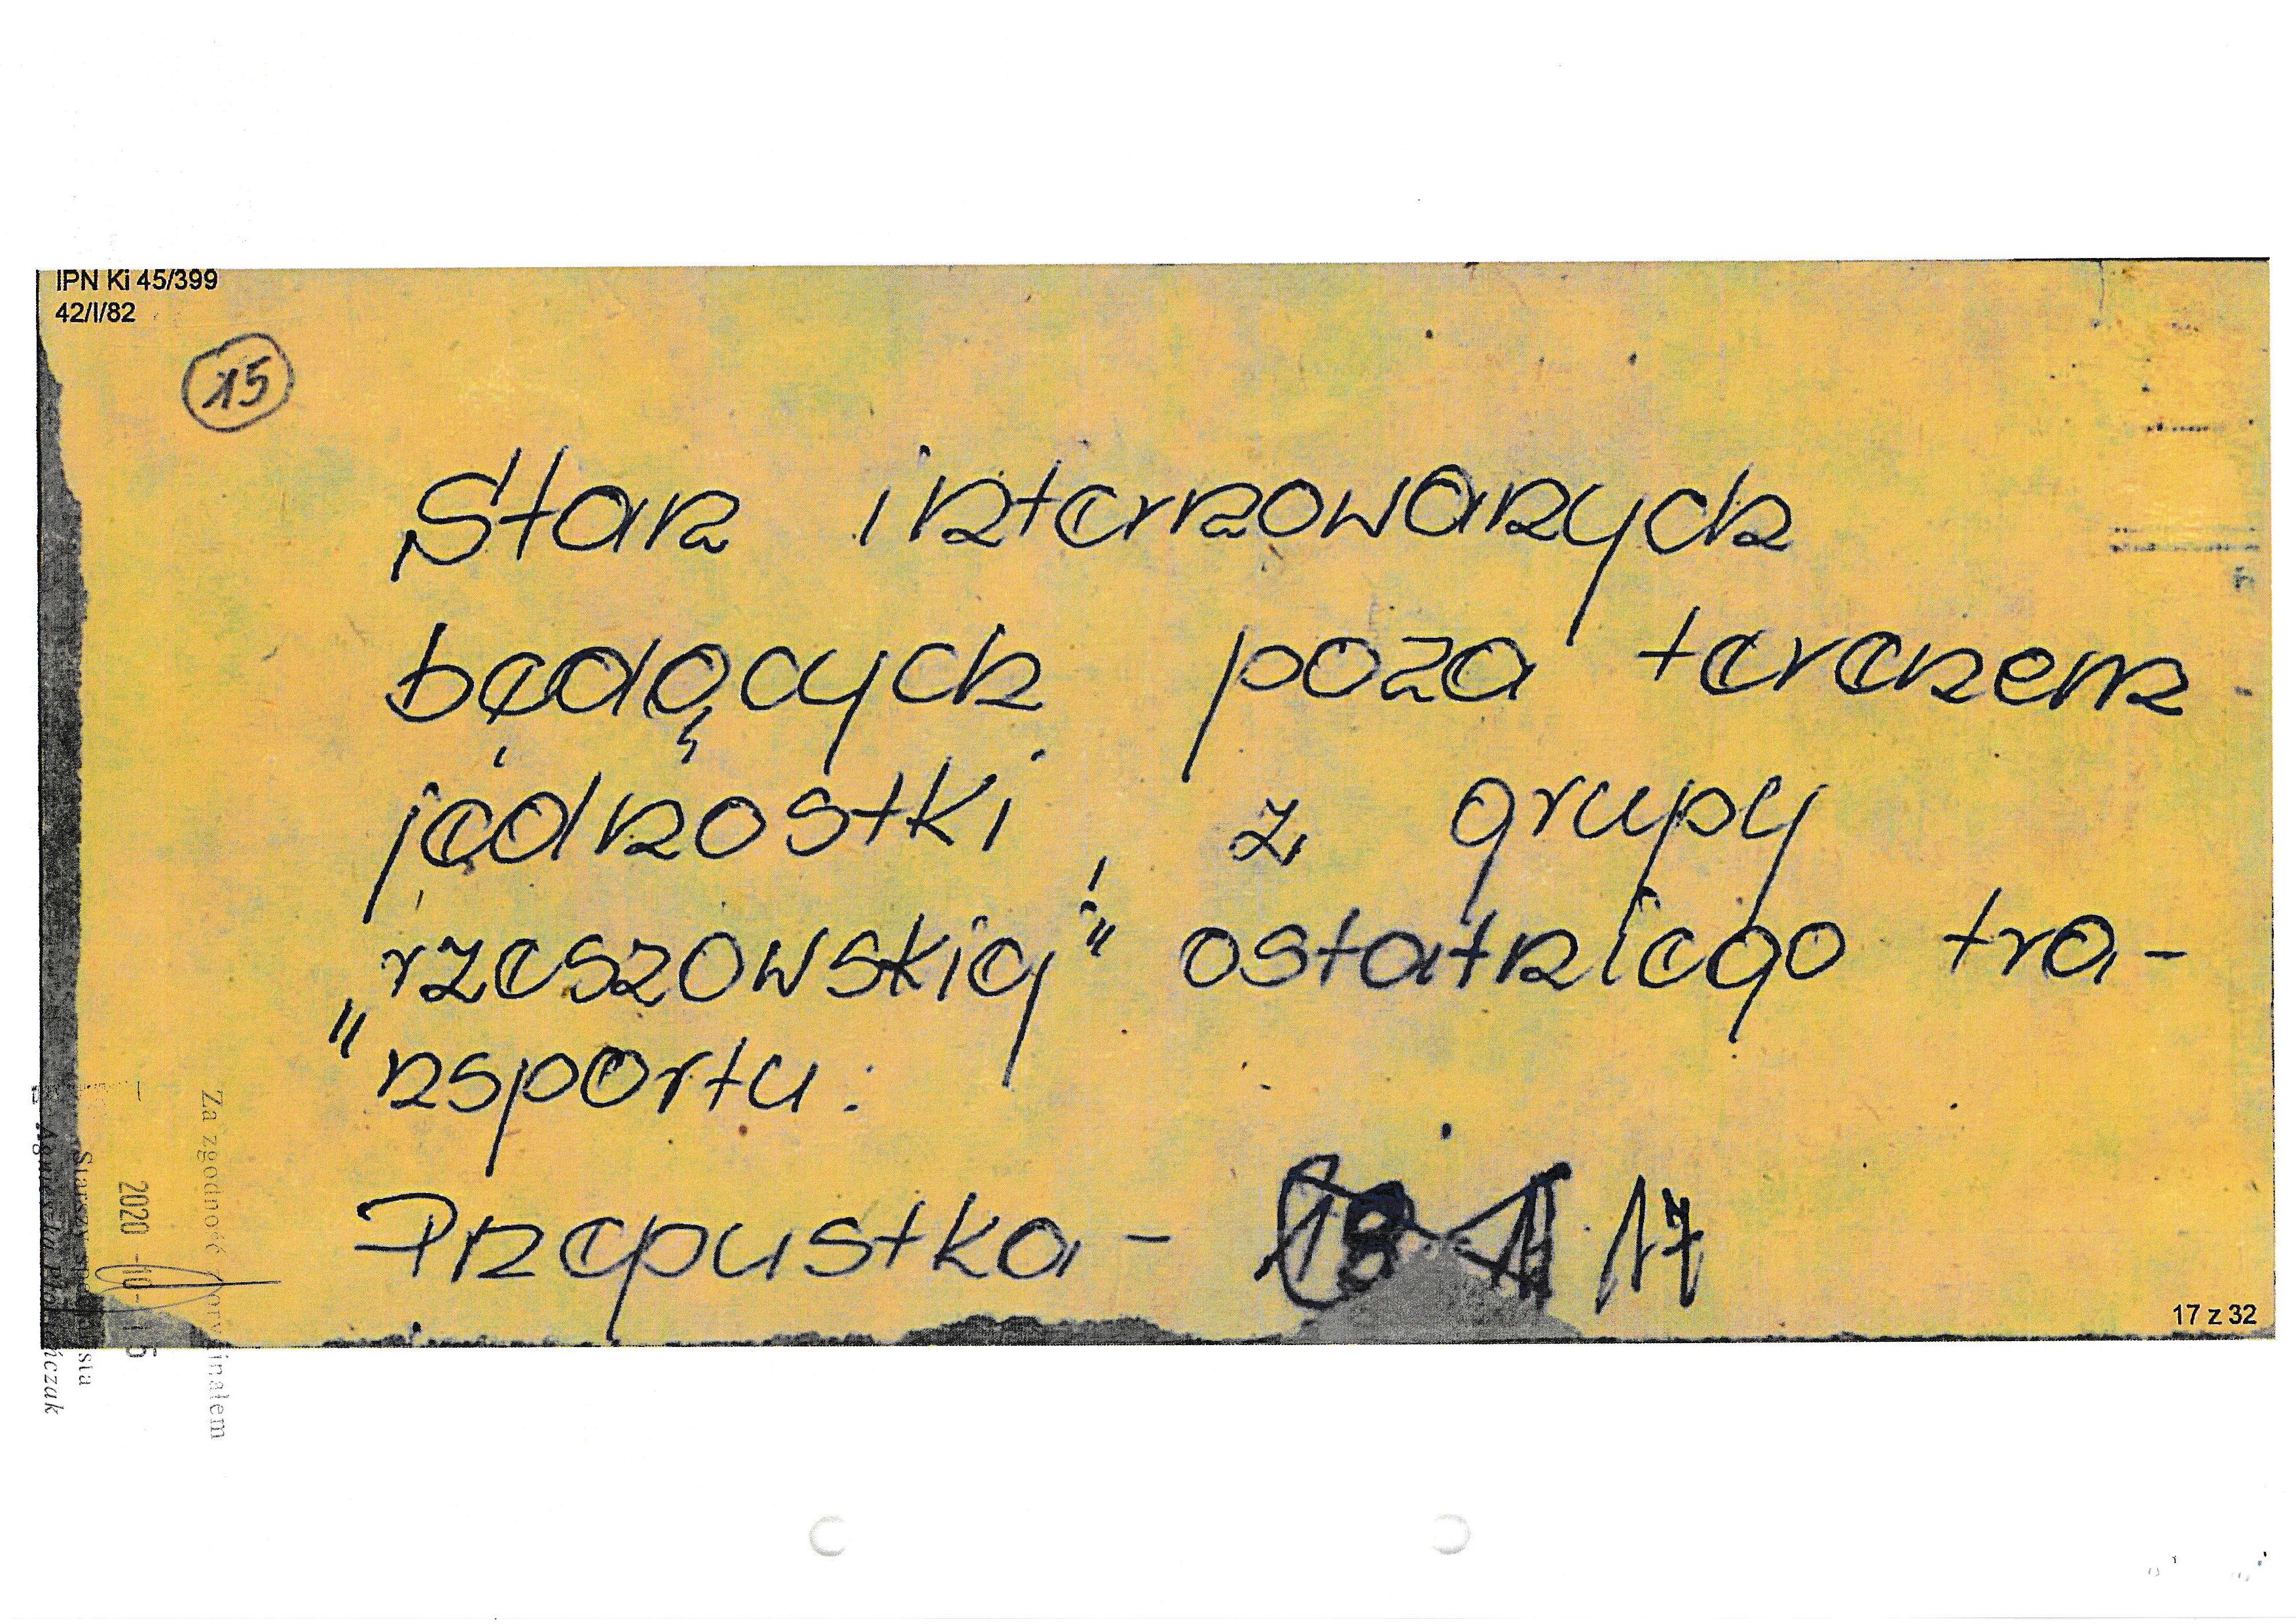 IPN Ki 45/399
42/I/82
15
Stan internowanych
będących poza terenem
jednostki, z grupy
„rzeszowskiej" ostatniego tra-
nsportu:
Przepustka - 17
17 z 32
Za zgodność z oryginałem
2020 -10- 15
Starszy specjalista
Agnieszka